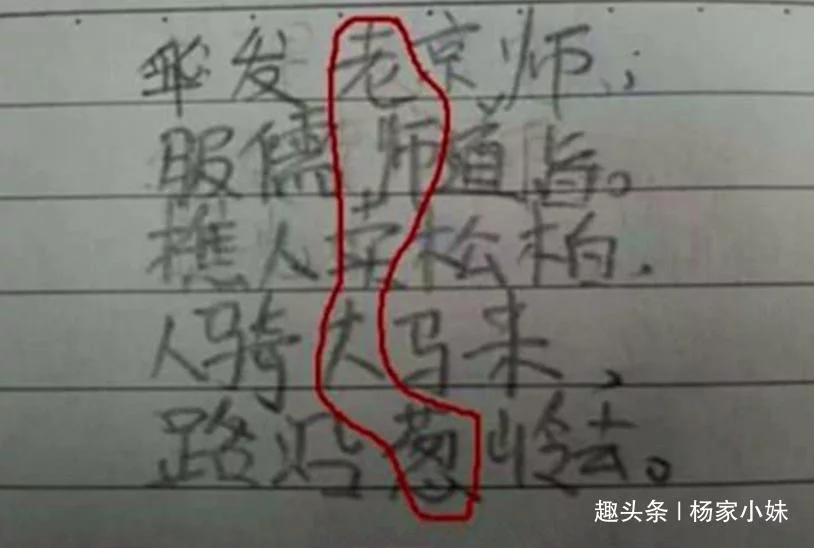 发老京师；
服儒师道旨。
樵人卖松柏.
人骑大马来、
路沿葱岭去。
趣头条 | 杨家小妹